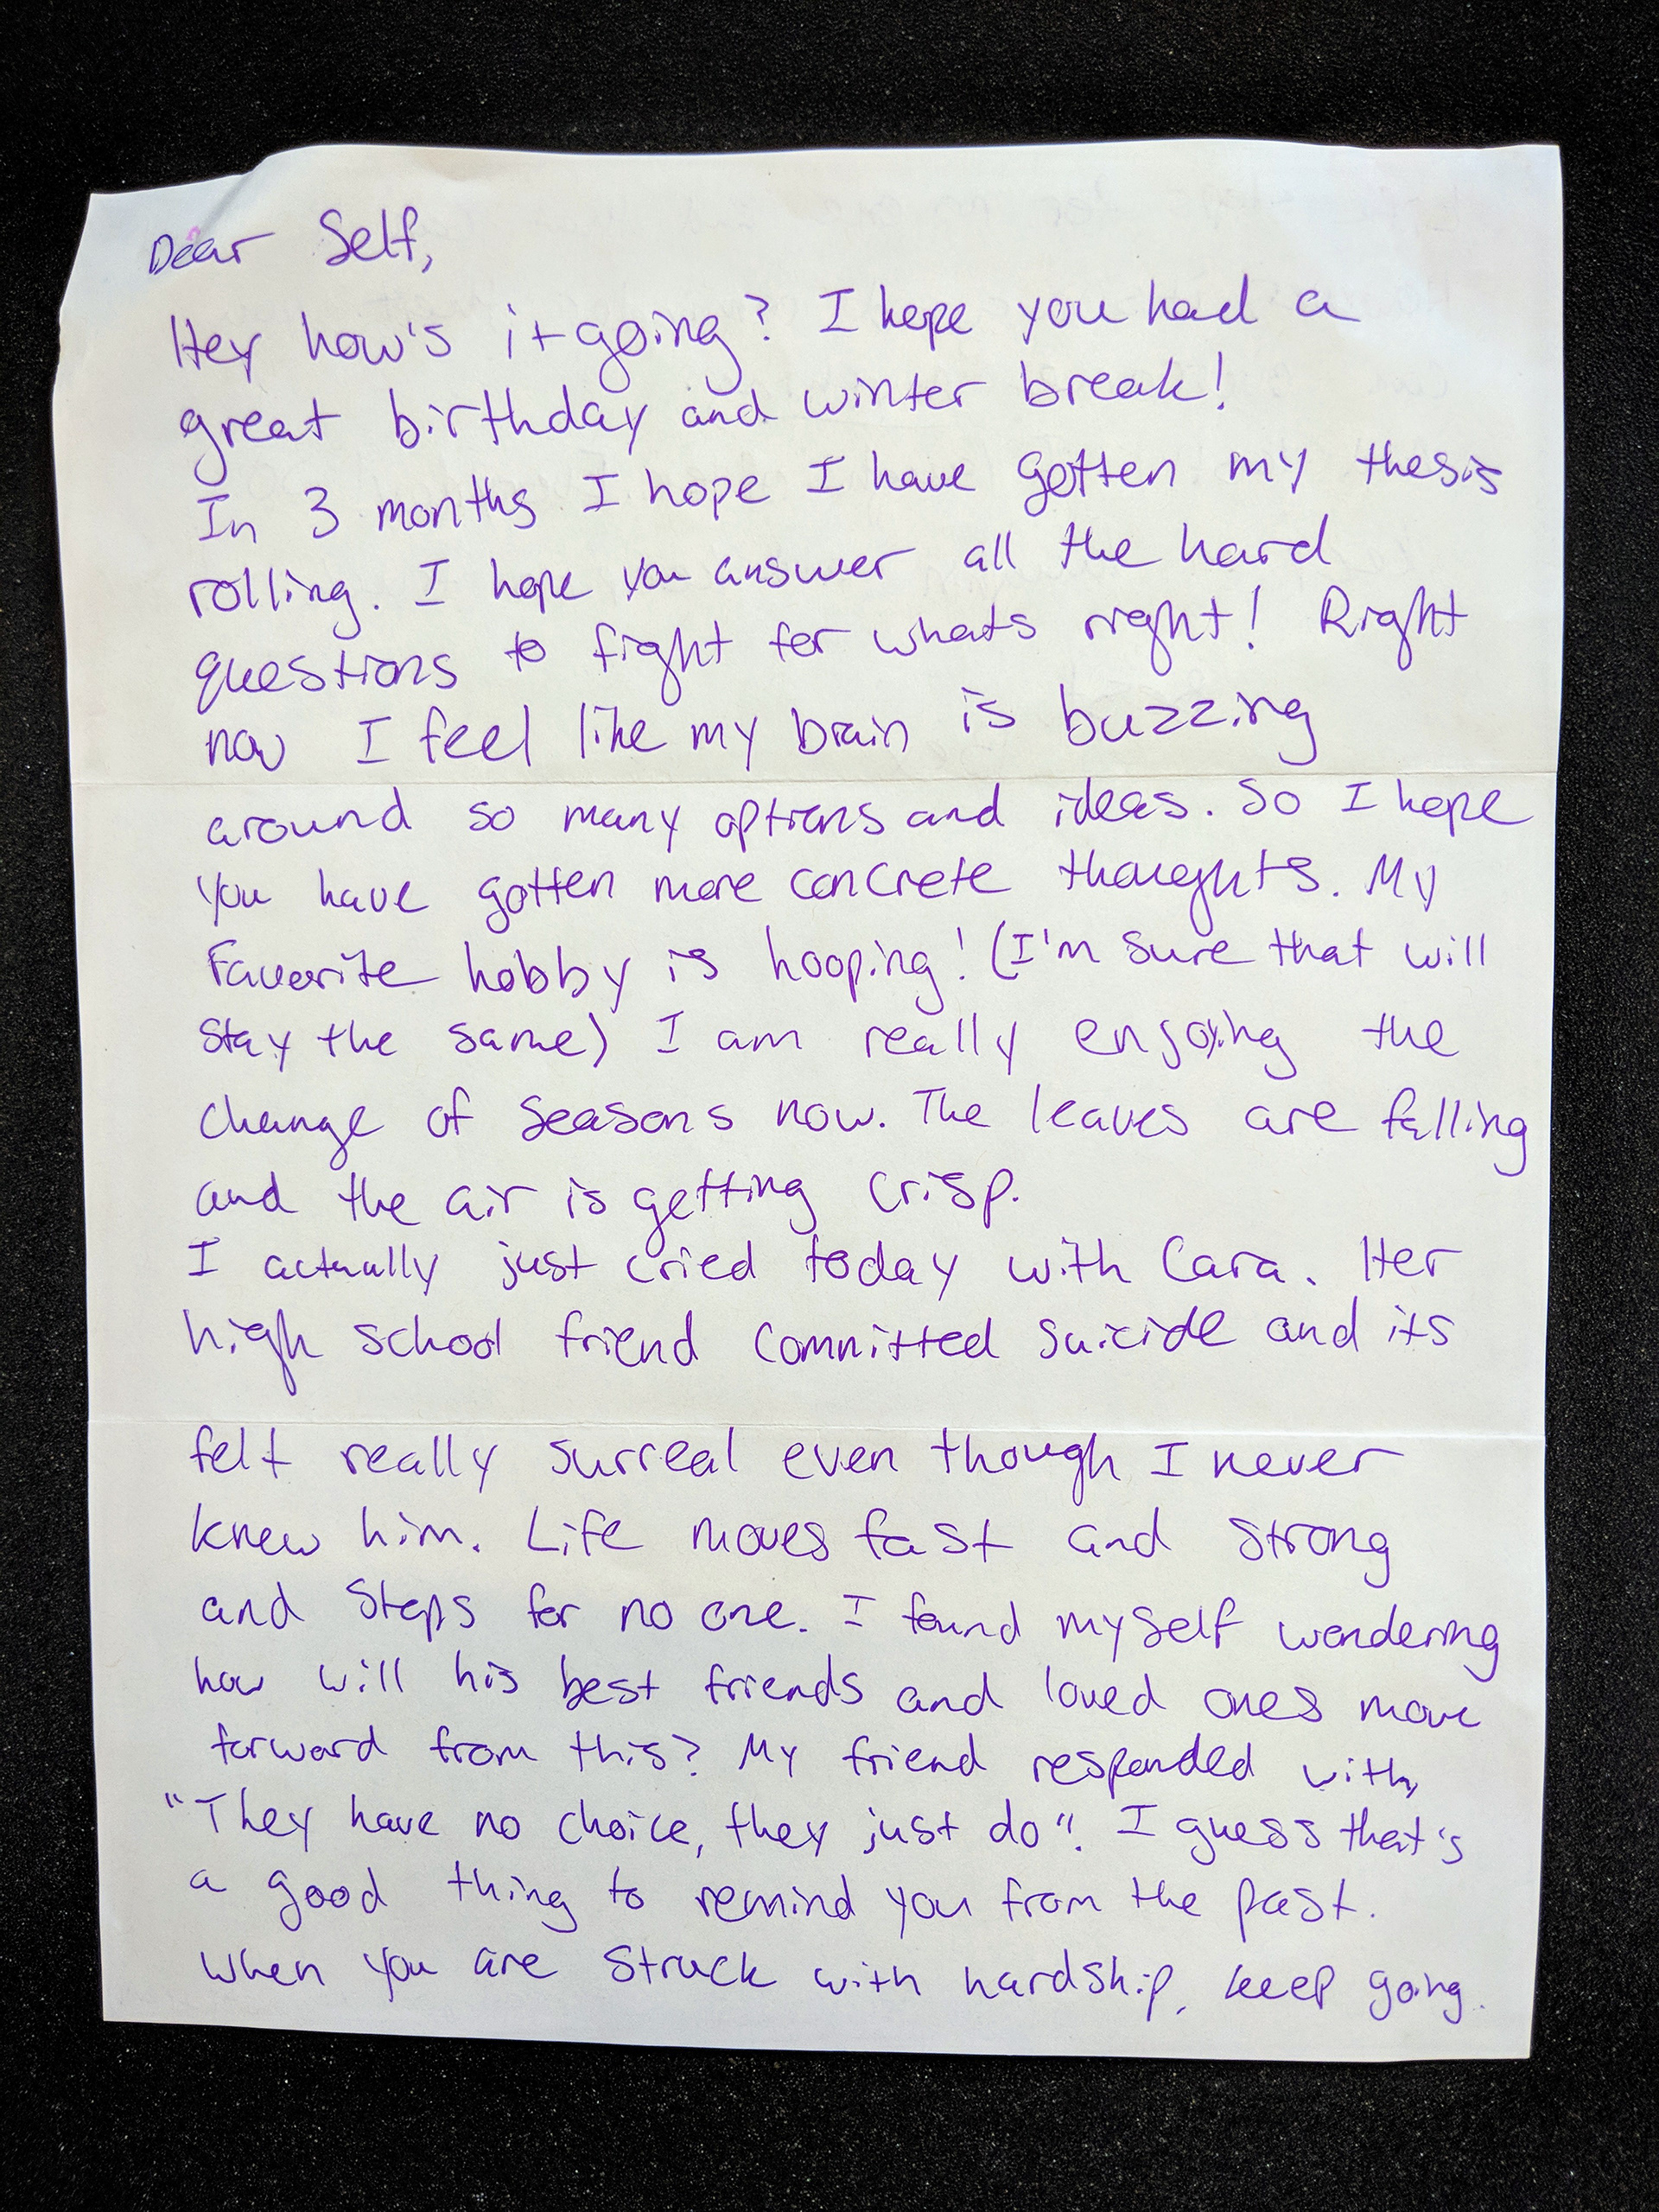 Dear Self,
Hey how's it going? I hope you had a
great birthday and winter break!
In 3 months I hope I have gotten my thesis
rolling. I hope you answer all the hard
questions to fight for whats right! Right
now I feel like my brain is buzzing
around so many options and ideas. So I hope
you have gotten more concrete thoughts. My
Favorite hobby is hooping! (I'm sure that will
stay the same) I am really enjoying the
change of seasons now. The leaves are falling
and the air is getting crisp.
I actually just cried today with Cara. Her
high school friend committed suicide and its
felt really surreal even though I never
knew him. Life moves fast and strong
and stops for no one. I found myself wondering
how will his best friends and loved ones move
forward from this? My friend responded with,
"They have no choice, they just do". I guess that's
a good thing to remind you from the past.
When you are struck with hardship, keep going.